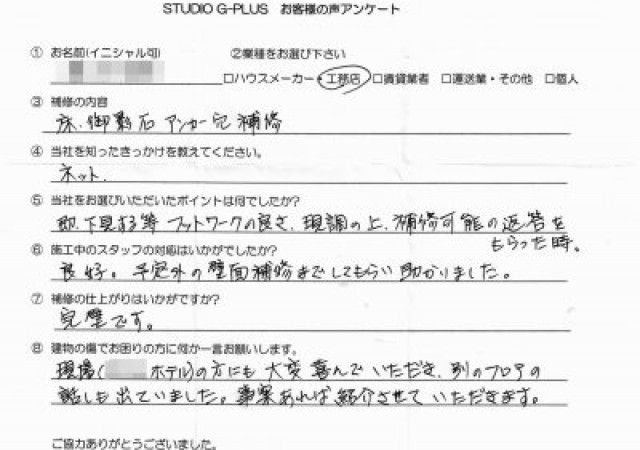 STUDIO G-PLUS お客様の声アンケート
① お名前(イニシャル可) ②業種をお選び下さい
□ハウスメーカー・工務店 □賃貸業者 □運送業・その他 □個人
③ 補修の内容
床、御影石 アンカー穴 補修
④ 当社を知ったきっかけを教えてください。
ネット、
⑤ 当社をお選びいただいたポイントは何でしたか?
即、下見する等 フットワークの良さ、現調の上、補修可能の返答を
もらった時。
⑥ 施工中のスタッフの対応はいかがでしたか?
良好。予定外の壁面補修までしてもらい助かりました。
⑦ 補修の仕上がりはいかがですか?
完璧です。
⑧ 建物の傷でお困りの方に何か一言お願いします。
現場( ホテル)の方にも大変喜んでいただき、別のフロアの
話しも出ていました。事案あれば紹介させていただきます。
ご協力ありがとうございました。